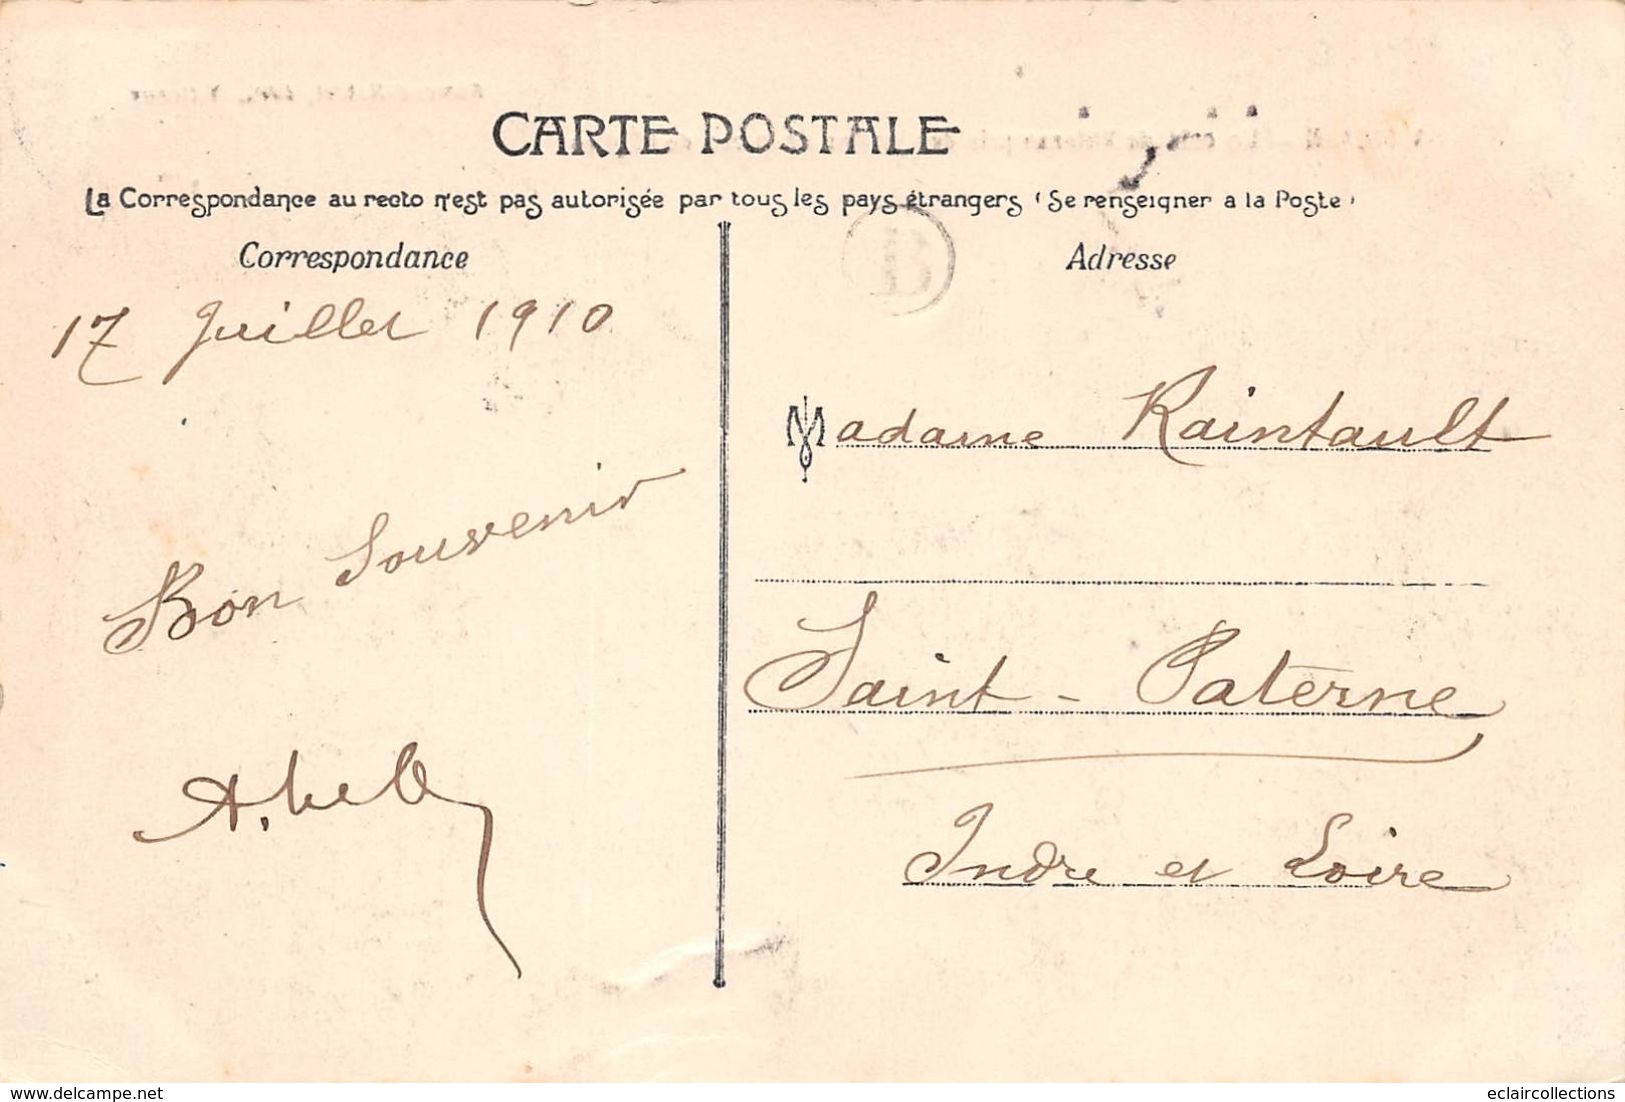 CARTE POSTALE
La Correspondance au recto n'est pas autorisée par tous les pays étrangers (Se renseigner a la Poste)
Correspondance
17 Juillet 1910
Bon Souvenir
Adresse
Madame Raintault
Saint-Paterne
Indre et Loire
delcampe.net
eclaircollections